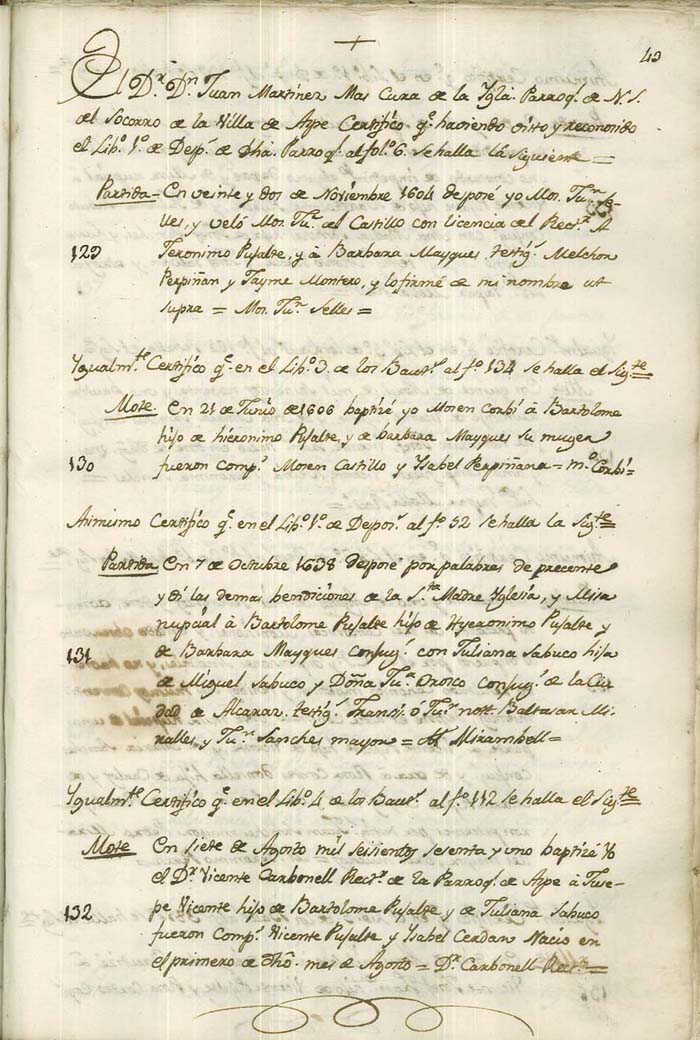 +
43
El Dr. Dn. Juan Martinez Mas Cura de la Ygla. Parroql. de N. S.
del Socorro de la Villa de Aspe Certifico qe. haviendo visto y reconosido
el Libo. 1o. de Desps. de dha. Parroql. al folo. 6. se halla la Siguiente =
Partida = En veinte y dos de Noviembre 1604 desposé yo Mos. Jun. Se-
lles, y veló Mos. Jun. del Castillo con licencia del Rectr. A
129 Jeronimo Pujalte, y à Barbara Mayques. testigs. Melchor
Perpiñan y Jayme Montero, y lo firmé de mi nombre ut
supra = Mos. Jun. Selles =
Ygualmte. Certifico qe. en el Libo. 3. de los Bautss. al fo. 134 se halla el Sigte.
Mote. En 21 de Junio de 1606 baptizé yo Mosen Corbí à Bartolome
hijo de hieronimo Pujalte, y de barbara Mayques su muger
130 fueron comps. Mosen Castillo y Ysabel Perpiñana = Mo. Corbí =
Asimismo Certifico qe. en el Libo. 1o. de Desposs. al fo. 52 se halla la Sigte.
Partida En 7 de Octubre 1638 desposé por palabras de precente
y dí las demas bendiciones de la Sta. Madre Yglesia, y Misa
nupcial à Bartolome Pujalte hijo de Hyeronimo Pujalte y
131 de Barbara Mayques conjugs. con Juliana Sabuco hija
de Miguel Sabuco y Doña Jua. Orosco conjugs. de la Ciu
dad de Alcaraz. testigs. Jun. nott. Baltasar Mi-
ralles, y Jun. Sanches mayor = Mirambell =
Ygualmte. Certifico qe. en el Libo. 4 de los Bautss. al fo. 112 se halla el Sigte.
Mote En siete de Agosto mil seisientos sesenta y uno baptizé Yo
el Dr. Vicente Carbonell Rectr. de la Parroql. de Aspe à Juse-
132 pe Vicente hijo de Bartolome Pujalte y de Juliana Sabuco
fueron comps. Vicente Pujalte y Ysabel Cerdan Nacio en
el primero de dho. mes de Agosto = Dr. Carbonell Rectr. =